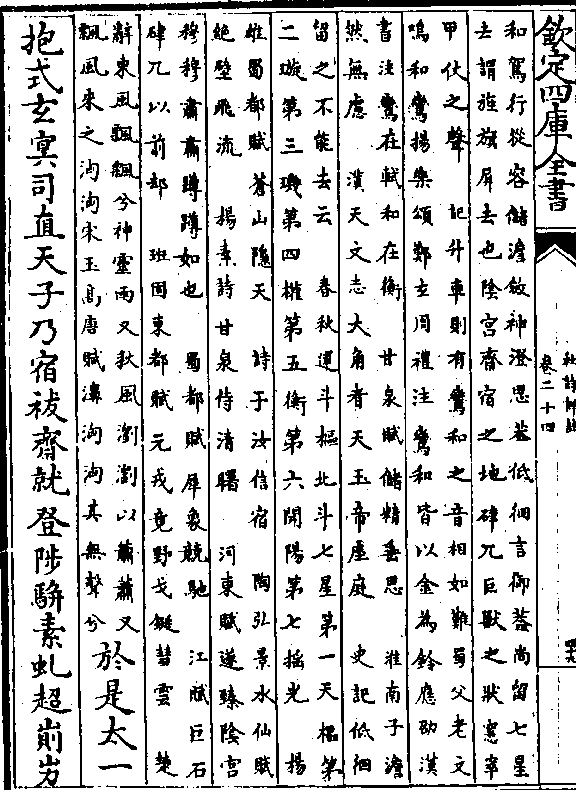 欽定四庫全書
杜詩詳註
卷二十四
四十九
和駕行從容儲澹斂神澄思蓋低徊言御蓋尚留七星
去謂旌旗屏去也陰宮齋宿之地硉兀巨獸之狀窸窣
甲仗之聲 記升車則有鸞和之音相如難蜀父老文
鳴和鸞揚樂頌鄭玄周禮注鸞和皆以金為鈴應劭漢
書注鸞在軾和在衡 甘泉賦儲精垂思 淮南子澹
然無慮 漢天文志大角者天王帝座庭 史記低徊
留之不能去云 春秋運斗樞北斗七星第一天樞第
二璇第三璣第四權第五衡第六開陽第七搖光 揚
雄蜀都賦蒼山隱天 詩于汝信宿 陶弘景水仙賦
絕壁飛流 揚素詩甘泉侍清曙 河東賦遂臻陰宮
穆穆肅肅蹲蹲如也 蜀都賦犀象競馳 江賦巨石
硉兀以前却 班固東都賦元戎竟野戈鋋彗雲 楚
辭東風飄飄兮神靈雨又秋風瀏瀏以蕭蕭又
飄風來之洶洶宋玉高唐賦濞洶洶其無聲兮
於是太一
抱式玄冥司直天子乃宿祓齋就登陟駢素虬超崱屴